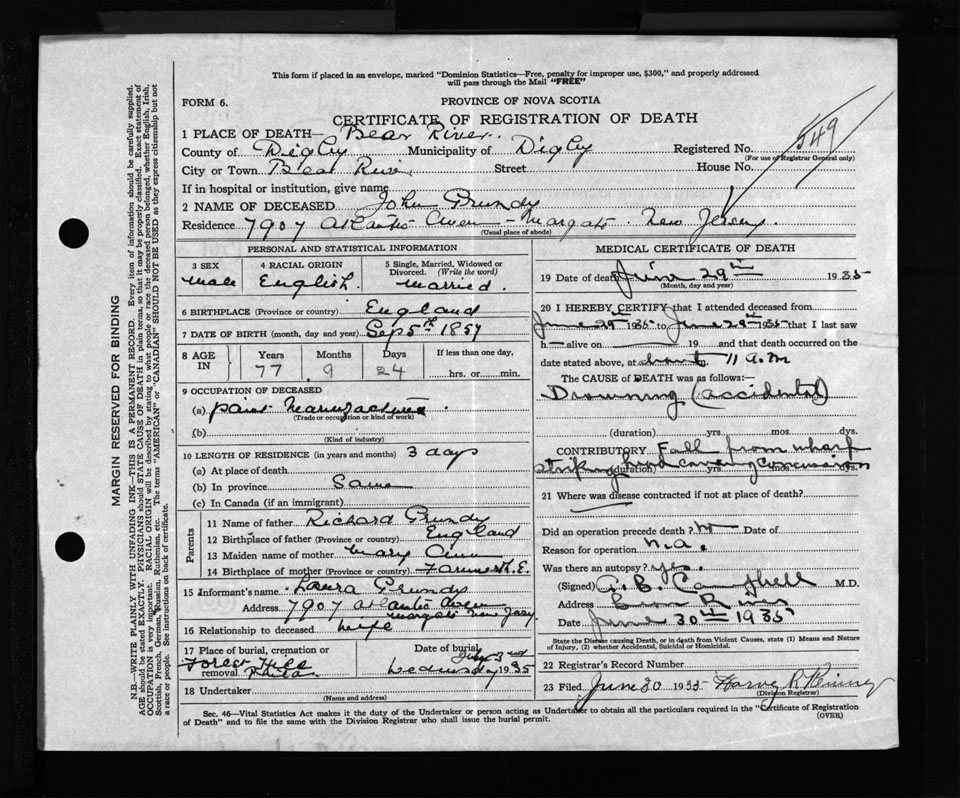 This form if placed in an envelope, marked "Dominion Statistics—Free, penalty for improper use, $300," and properly addressed
will pass through the Mail "FREE"
FORM 6.
PROVINCE OF NOVA SCOTIA
CERTIFICATE OF REGISTRATION OF DEATH
549
1 PLACE OF DEATH— Bear River.
County of Digby Municipality of Digby Registered No.
(For use of Registrar General only)
City or Town Bear River Street House No.
If in hospital or institution, give name
2 NAME OF DECEASED John Grundy
Residence 7907 Atlantic Aven - Margate. New Jersey
(Usual place of abode)
PERSONAL AND STATISTICAL INFORMATION
3 SEX 4 RACIAL ORIGIN 5 Single, Married, Widowed or
Divorced. (Write the word)
Male English. Married.
6 BIRTHPLACE (Province or country) England
7 DATE OF BIRTH (month, day and year) Sep 5th 1857
8 AGE IN Years Months Days If less than one day,
77 9 24 hrs. or min.
9 OCCUPATION OF DECEASED
(a) Paint Manufacturer
(Trade or occupation or kind of work)
(b)
(Kind of industry)
10 LENGTH OF RESIDENCE (in years and months) 3 days
(a) At place of death
(b) In province Same
(c) In Canada (if an immigrant)
Parents
11 Name of father Richard Grundy
12 Birthplace of father (Province or country) England
13 Maiden name of mother Mary Ann
14 Birthplace of mother (Province or country)
15 Informant's name Laura Grundy
Address 7907 Atlantic Aven
Margate New Jersy
16 Relationship to deceased wife
17 Place of burial, cremation or Date of burial
removal Forest Hill Phila. July 3rd
1935
18 Undertaker
(Name and address)
MEDICAL CERTIFICATE OF DEATH
19 Date of death June 29th 1935
(Month, day and year)
20 I HEREBY CERTIFY that I attended deceased from
June 29th 1935 to June 29th 1935 that I last saw
h— alive on 19 and that death occurred on the
date stated above, at about 11 a.m
The CAUSE OF DEATH was as follows:—
Drowning (accidental)
(duration) yrs. mos. dys.
CONTRIBUTORY Fall from wharf
striking head causing concussion
(duration) yrs. mos. dys.
21 Where was disease contracted if not at place of death?
Did an operation precede death? no Date of
Reason for operation n.a.
Was there an autopsy? yes.
(Signed) Campbell M.D.
Address Bear River
Date June 30th 1935
State the Disease causing Death, or in death from Violent Causes, state (1) Means and Nature
of Injury, (2) whether Accidental, Suicidal or Homicidal.
22 Registrar's Record Number
23 Filed June 30 1935
(Division Registrar)
Sec. 46—Vital Statistics Act makes it the duty of the Undertaker or person acting as Undertaker to obtain all the particulars required in the "Certificate of Registration
of Death" and to file the same with the Division Registrar who shall issue the burial permit.
(OVER)
MARGIN RESERVED FOR BINDING
N.B.—WRITE PLAINLY WITH UNFADING INK—THIS IS A PERMANENT RECORD. Every item of information should be carefully supplied.
AGE should be stated EXACTLY. PHYSICIANS should STATE CAUSE OF DEATH in plain terms, so that it may be properly classified. Exact statement of
OCCUPATION is very important. RACIAL ORIGIN will be described by stating to what people or race the deceased person belonged, whether English, Irish,
Scottish, French, German, Russian, Ruthenian, etc. The terms "AMERICAN" or "CANADIAN" SHOULD NOT BE USED as they express citizenship but not
a race or people. See instructions on back of certificate.